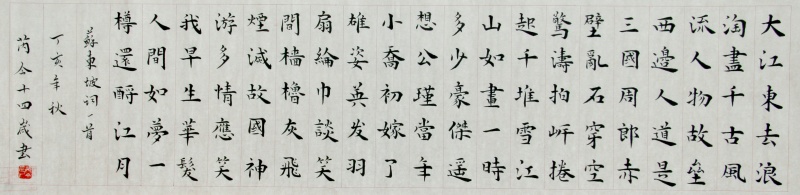 大江東去浪
淘盡千古風
流人物故壘
西邊人道是
三國周郎赤
壁亂石穿空
驚濤拍岸捲
起千堆雪江
山如畫一時
多少豪傑遙
想公瑾當年
小喬初嫁了
雄姿英发羽
扇綸巾談笑
間檣櫓灰飛
煙滅故國神
游多情應笑
我早生華髮
人間如夢一
樽還酹江月
蘇東坡詞一首
丁亥年秋
十四歲書